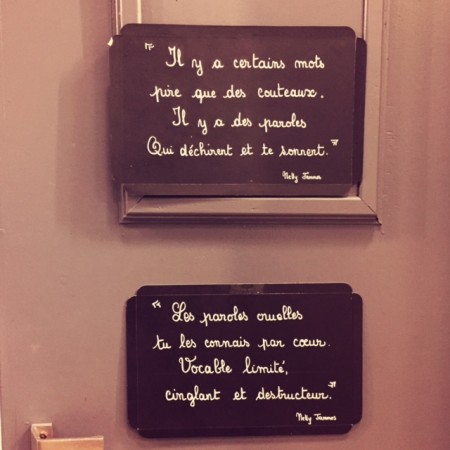 "Il y a certains mots
pire que des couteaux.
Il y a des paroles
Qui déchirent et te sonnent."
Nelly
"Les paroles cruelles
tu les connais par cœur.
Vocable limité,
cinglant et destructeur."
Nelly